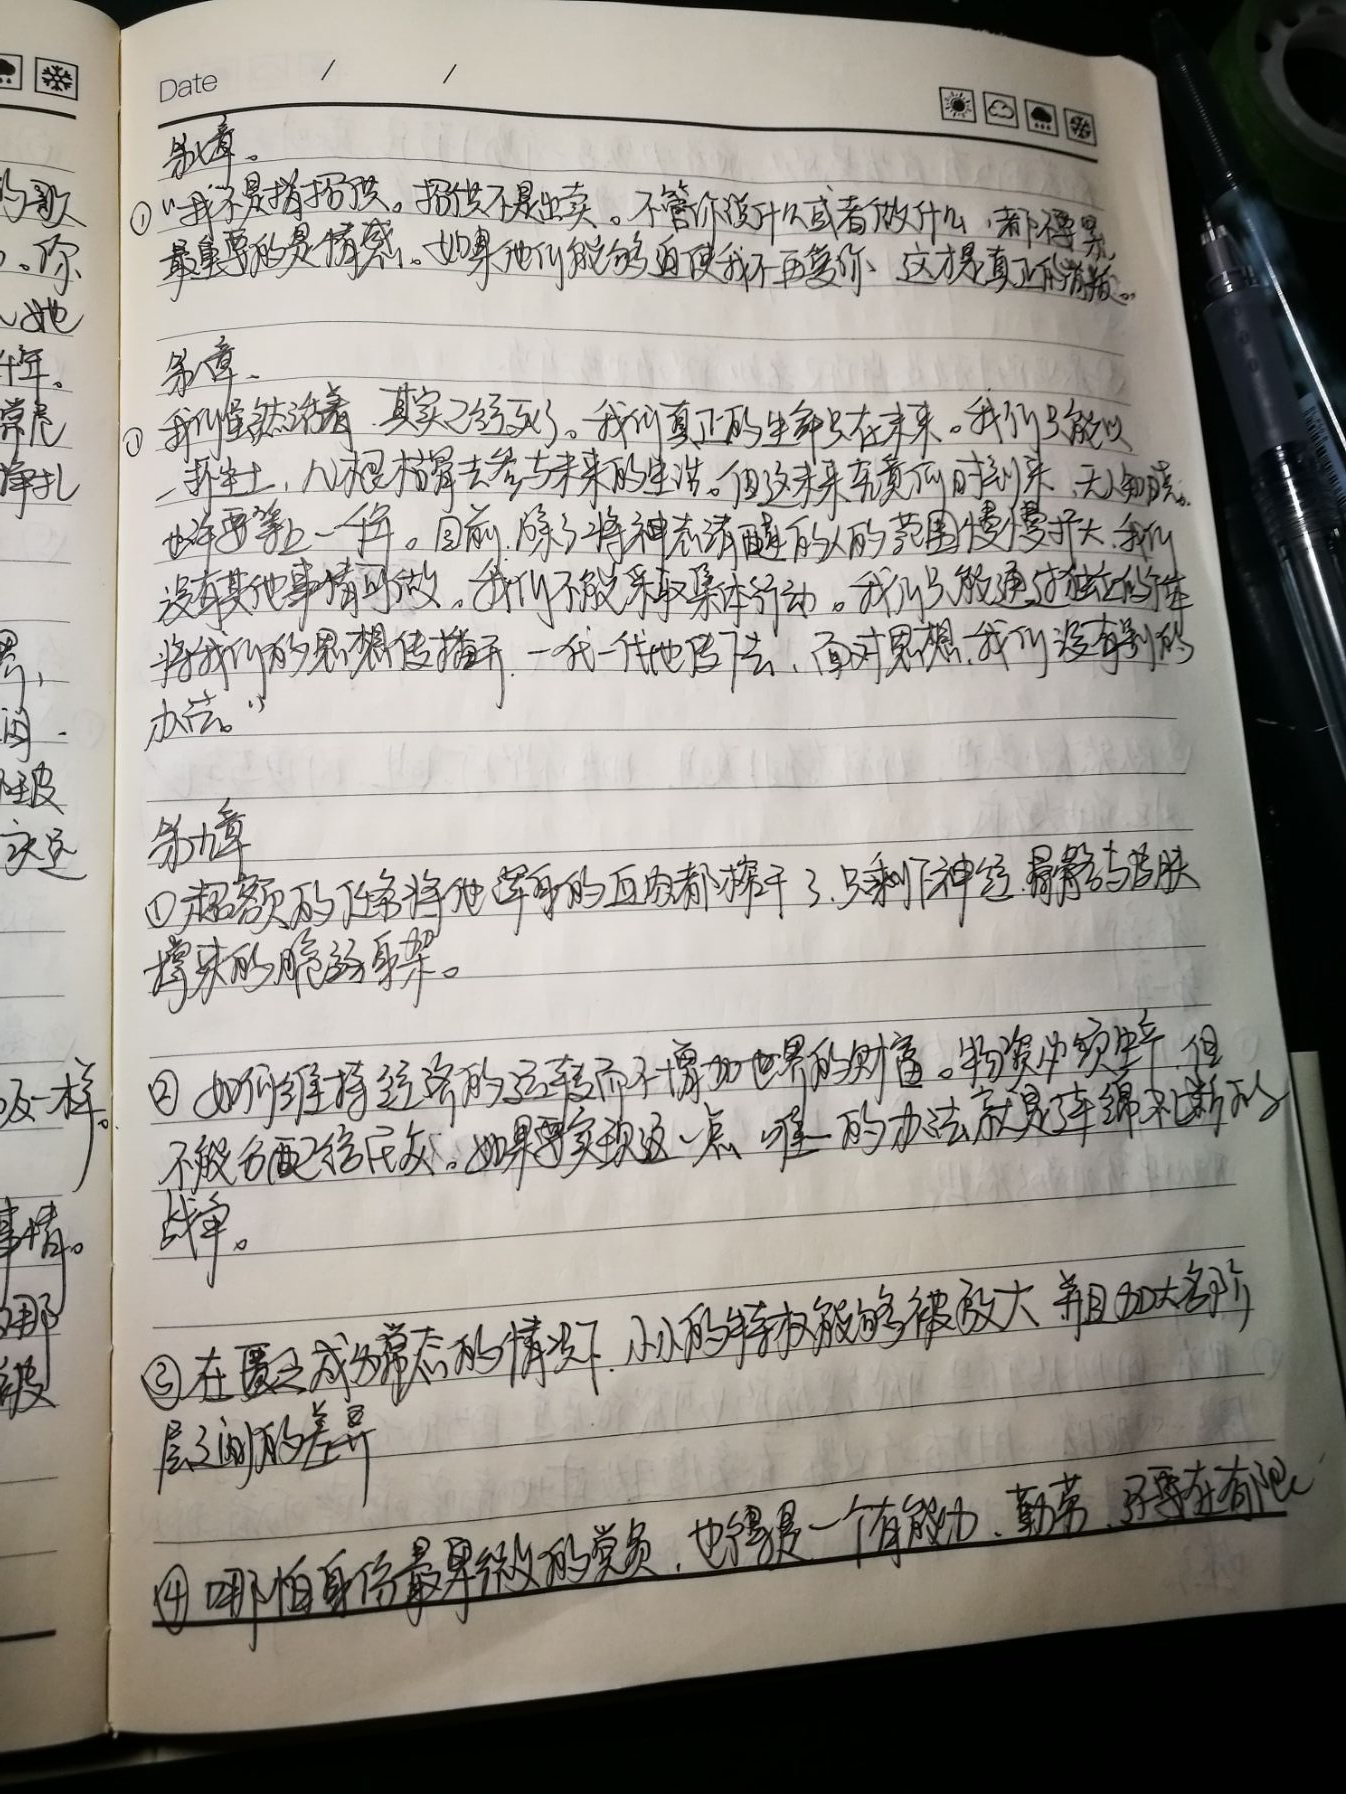 的歌
。你
她
十年。
常是
挣扎
被
决定
一样。
事情。
哪
被
Date / /
第七章。
①“我不是指招供。招供不是出卖。不管你说什么或者做什么,都不要紧,
最重要的是情感。如果他们能够迫使我不再爱你、这才是真正的背叛。
第八章.
① 我们虽然活着.其实已经死了。我们真正的生命只在未来。我们只能以
一抔尘土,几根枯骨去参与未来的生活。但这未来究竟何时到来,无人知晓。
也许要等上一千年。目前.除了将神志清醒的人的范围慢慢扩大.我们
没有其他事情可做。我们不能采取集体行动。我们只能通过独立的个体
将我们的思想传播开.一代一代地传下去、面对思想.我们没有别的
办法。”
第九章
①超额的任务将他浑身的血肉都榨干了.只剩下神经.骨骼与皮肤
撑来的脆弱身架。
② 如何维持经济的运转而不增加世界的财富。物资必须生产.但
不能分配给民众。如果要实现这一点.唯一的办法就是连绵不断的
战争。
③在匮乏成为常态的情况下.小小的特权能够被放大 并且加大各阶
层之间的差异
④哪怕身份最卑微的党员,也得是一个有能力、勤劳、只要在有限